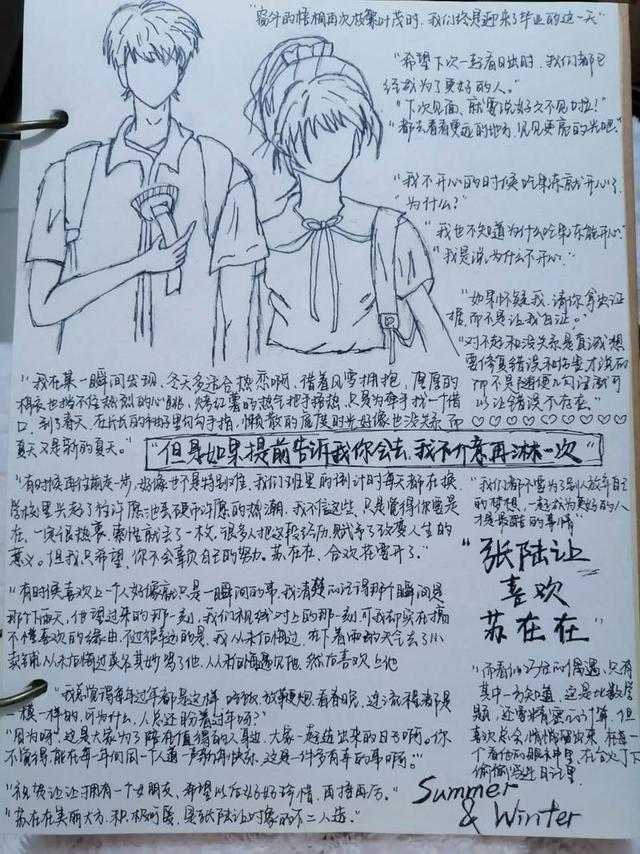 "窗外的梧桐再次枝繁叶茂时,我们终是迎来了毕业的这一天"
"希望下次一起看日出时,我们都已
经成为了更好的人。"
"下次见面,就要说好久不见啦!"
"都去看看更远的地方,见见更亮的光吧"
"我不开心的时候吃果冻就开心了。"
"为什么?"
"我也不知道为什么吃果冻能开心"
"我是说,为什么不开心."
"如果怀疑我,请你拿出证
据,而不是让我自证。"
"对不起和没关系是真诚想
要修复错误和伤害才说的
而不是随便几句话就可
以让错误不存在."
"我在某一瞬间发现,冬天多适合热恋啊,借着风雪拥抱,厚厚的
棉衣也挡不住热烈的心跳,烤红薯的热气把手捂热,只是为牵手找一个借
口,到了春天,在片片的柳树里勾勾手指,懒散的虚度时光好像也没关系,而
夏天又是新的夏天。"
"但是如果提前告诉我你会去,我不介意再淋一次"
"有时候再往前走一步,好像也不是特别难,我们班里的倒计时每天都在换,
学校里兴起了往许愿池丢硬币许愿的热潮,我不信这些,只是觉得你要是
在,一定很热衷,索性就丢了一枚,很多人把这段经历,赋予了改变人生的
意义。但我只希望,你不会辜负自己的努力。苏在在,合欢花要开了。"
"我们都不要为了别人放弃自己
的梦想,一起成为更好的人
才是最酷的事情"
"张陆让
喜欢
苏在在"
"有时候喜欢上一个人好像就只是一瞬间的事,我清楚的记得那个瞬间是
那个下雨天,他望过来的那一刻,我们视线对上的那一刻,可我却实在搞
不懂喜欢的缘由,不过很幸运的是,我从未后悔过,在下着雨的天气去了小
卖铺,从未后悔过莫名其妙骂了他,从未后悔遇见他,然后喜欢上他
"我总觉得每年过年都是这样,吃饭,放鞭炮,看春晚,连流程都是
一模一样的,可为什么,人总还盼着过年呀?"
"因为呀!这是大家为了陪在值得的人身边,大家一起造出来的日子啊。你
不觉得,能在每一年们同一个人道一声新年快乐,这是一件多有幸的事啊。"
"祝贺让让拥有一个女朋友,希望以后好好珍惜,再接再厉。"
"苏在在美丽大方,积极可爱,是张陆让对象的不二人选."
"而看似巧合的偶遇,只有
其中一方知道,这是比数学
题,还需精密的计算,但
喜欢总会悄悄溜出来,在每一
个看他的眼神中里,在台灯下
偷偷写进日记里.
Summer
& Winter